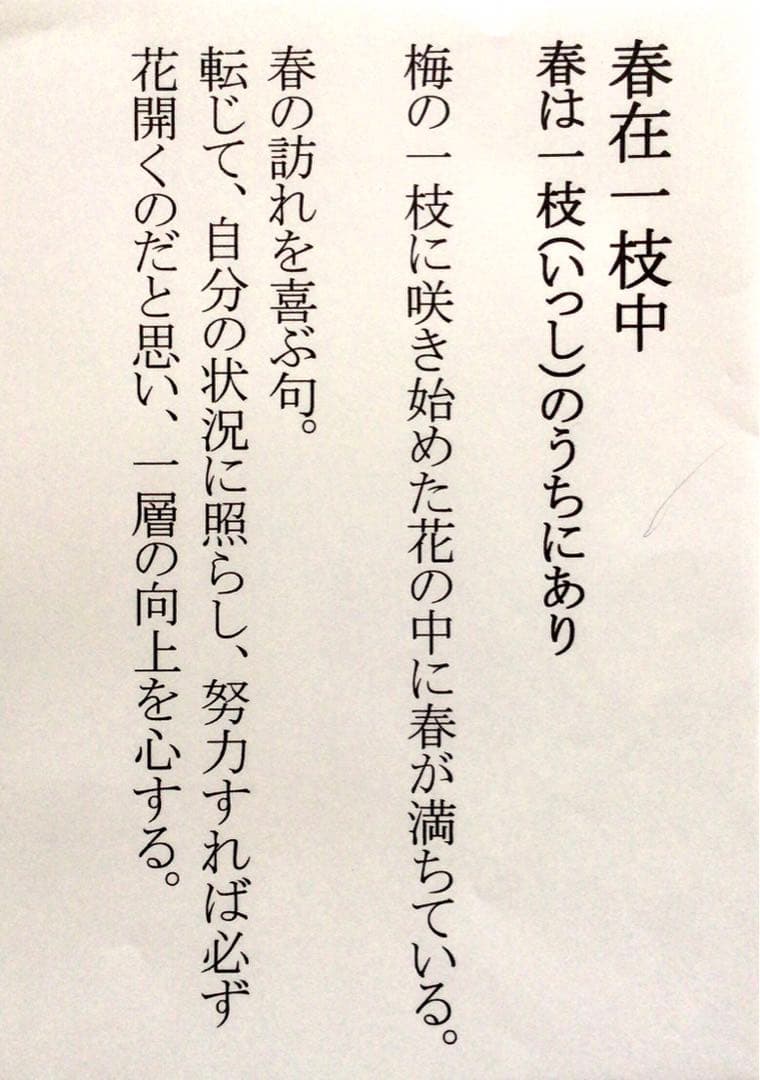 春在一枝中
春は一枝(いっし)のうちにあり
梅の一枝に咲き始めた花の中に春が満ちている。
春の訪れを喜ぶ句。
転じて、自分の状況に照らし、努力すれば必ず
花開くのだと思い、一層の向上を心する。